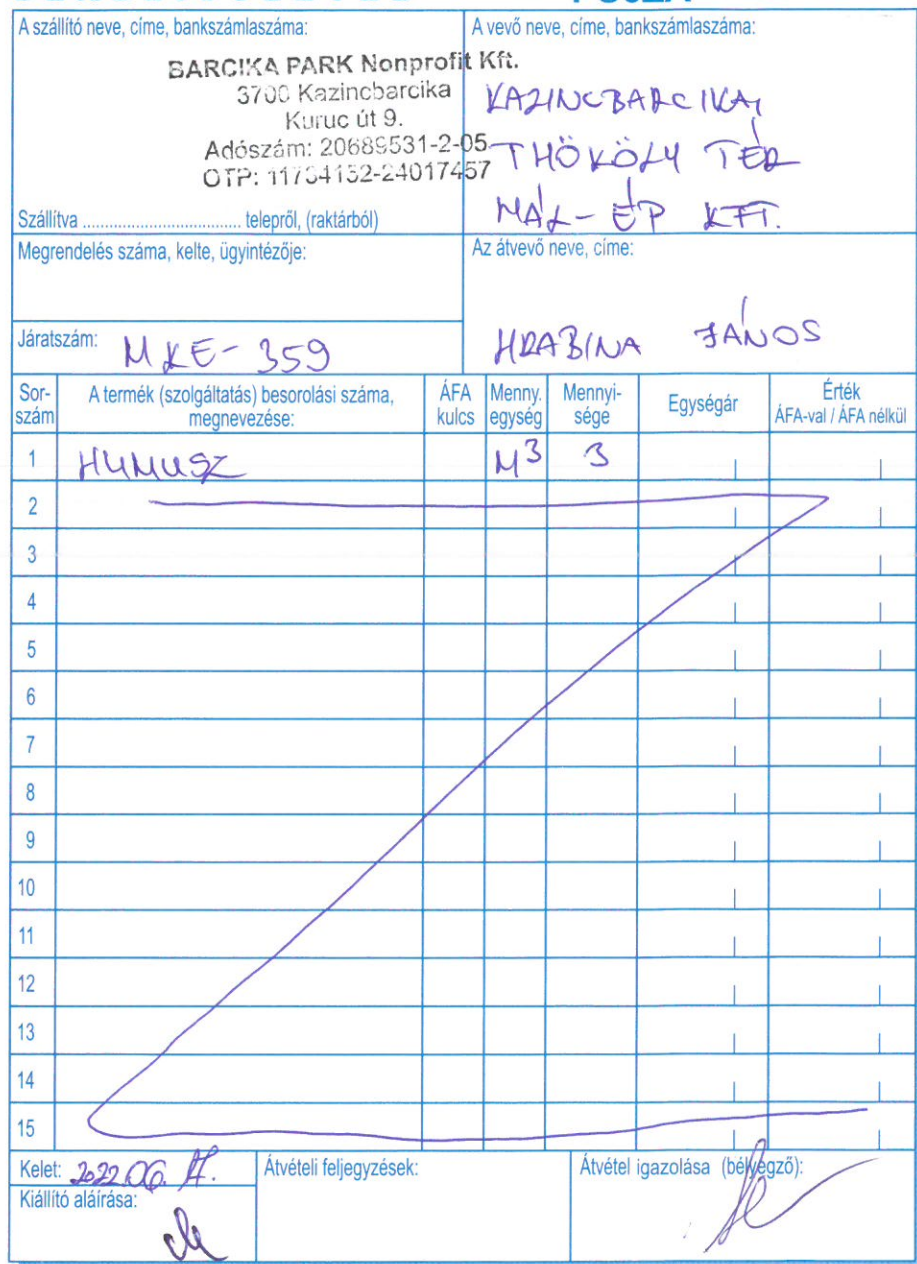 A szállító neve, címe, bankszámlaszáma:
BARCIKA PARK Nonprofit Kft.
3700 Kazincbarcika
Kuruc út 9.
Adószám: 20689531-2-05
OTP: 11734152-24017457
Szállítva ........................ telepről, (raktárból)
A vevő neve, címe, bankszámlaszáma:
KAZINCBARCIKA,
THÖKÖLY TÉR
MÁL-ÉP KFT.
Megrendelés száma, kelte, ügyintézője:
Az átvevő neve, címe:
HRABINA JÁNOS
Járatszám: MKE-359
Sor-szám A termék (szolgáltatás) besorolási száma, megnevezése: ÁFA kulcs Menny. egység Mennyi-sége Egységár Érték ÁFA-val / ÁFA nélkül
1 HUMUSZ M3 3
2
3
4
5
6
7
8
9
10
11
12
13
14
15
Kelet: 2022.06.
Átvételi feljegyzések:
Átvétel igazolása (bélyegző):
Kiállító aláírása: